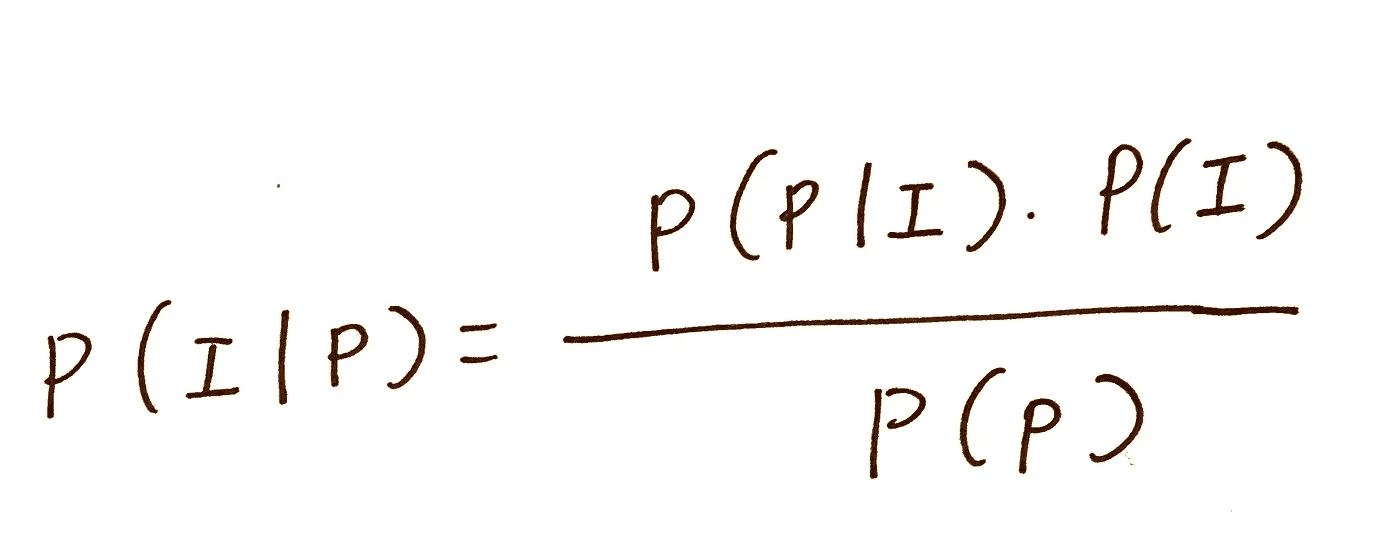 P(I|P) = P(P|I) · P(I)
P(P)